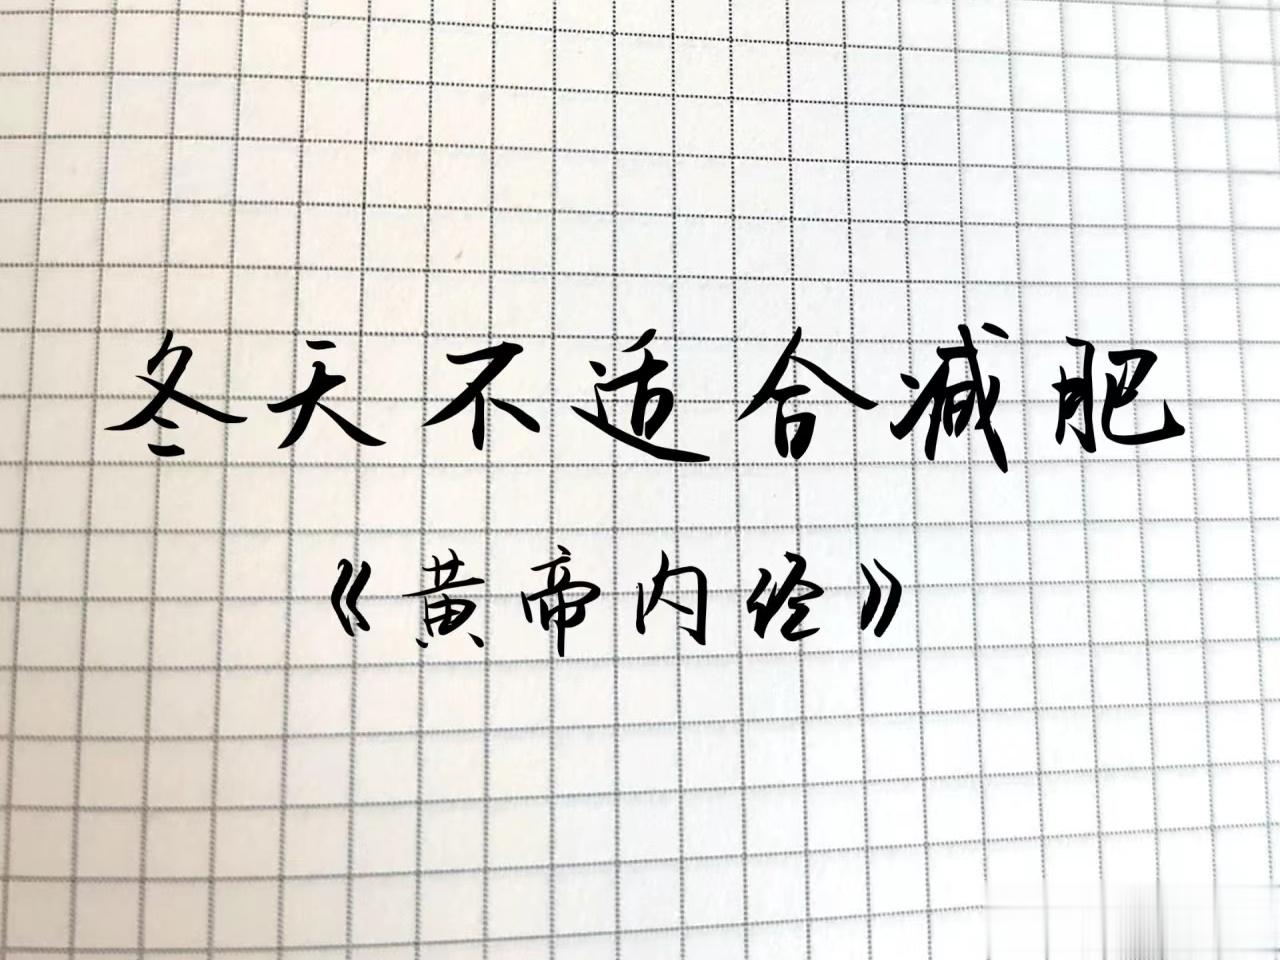 冬天不适合减肥
《黄帝内经》